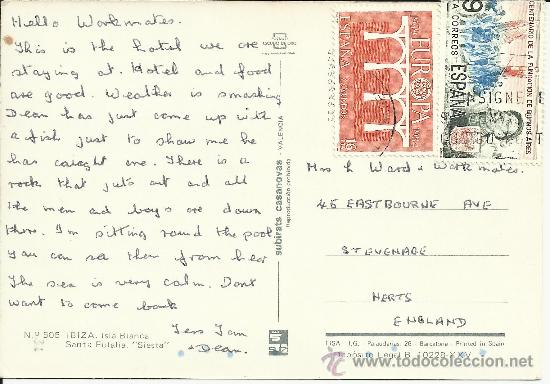 Hello Workmates.
This is the hotel we are
staying at. Hotel and food
are good. Weather is smashing
Dean has just come up with
a fish just to show me he
has caught one. There is a
rock that juts out and all
the men and boys are down
there. I'm sitting round the pool
You can see them from here
The sea is very calm. Dont
want to come back
Tess
+ Dean.
N.º 505 IBIZA. Isla Blanca
Santa Eulalia. "Siesta"
subirats casanovas
VALENCIA
Reproducción prohibida
ESPAÑA
CORREOS
EUROPA
16
CENTENARIO DE LA FUNDACION DE BUENOS AIRES
CORREOS
ESPAÑA
Mrs L Ward & Workmates.
45 EASTBOURNE AVE
STEVENAGE
HERTS
ENGLAND
FISA I.G. Palaudarias, 26 - Barcelona - Printed in Spain
Depósito Legal B. 10228-XXV
todocoleccion.net